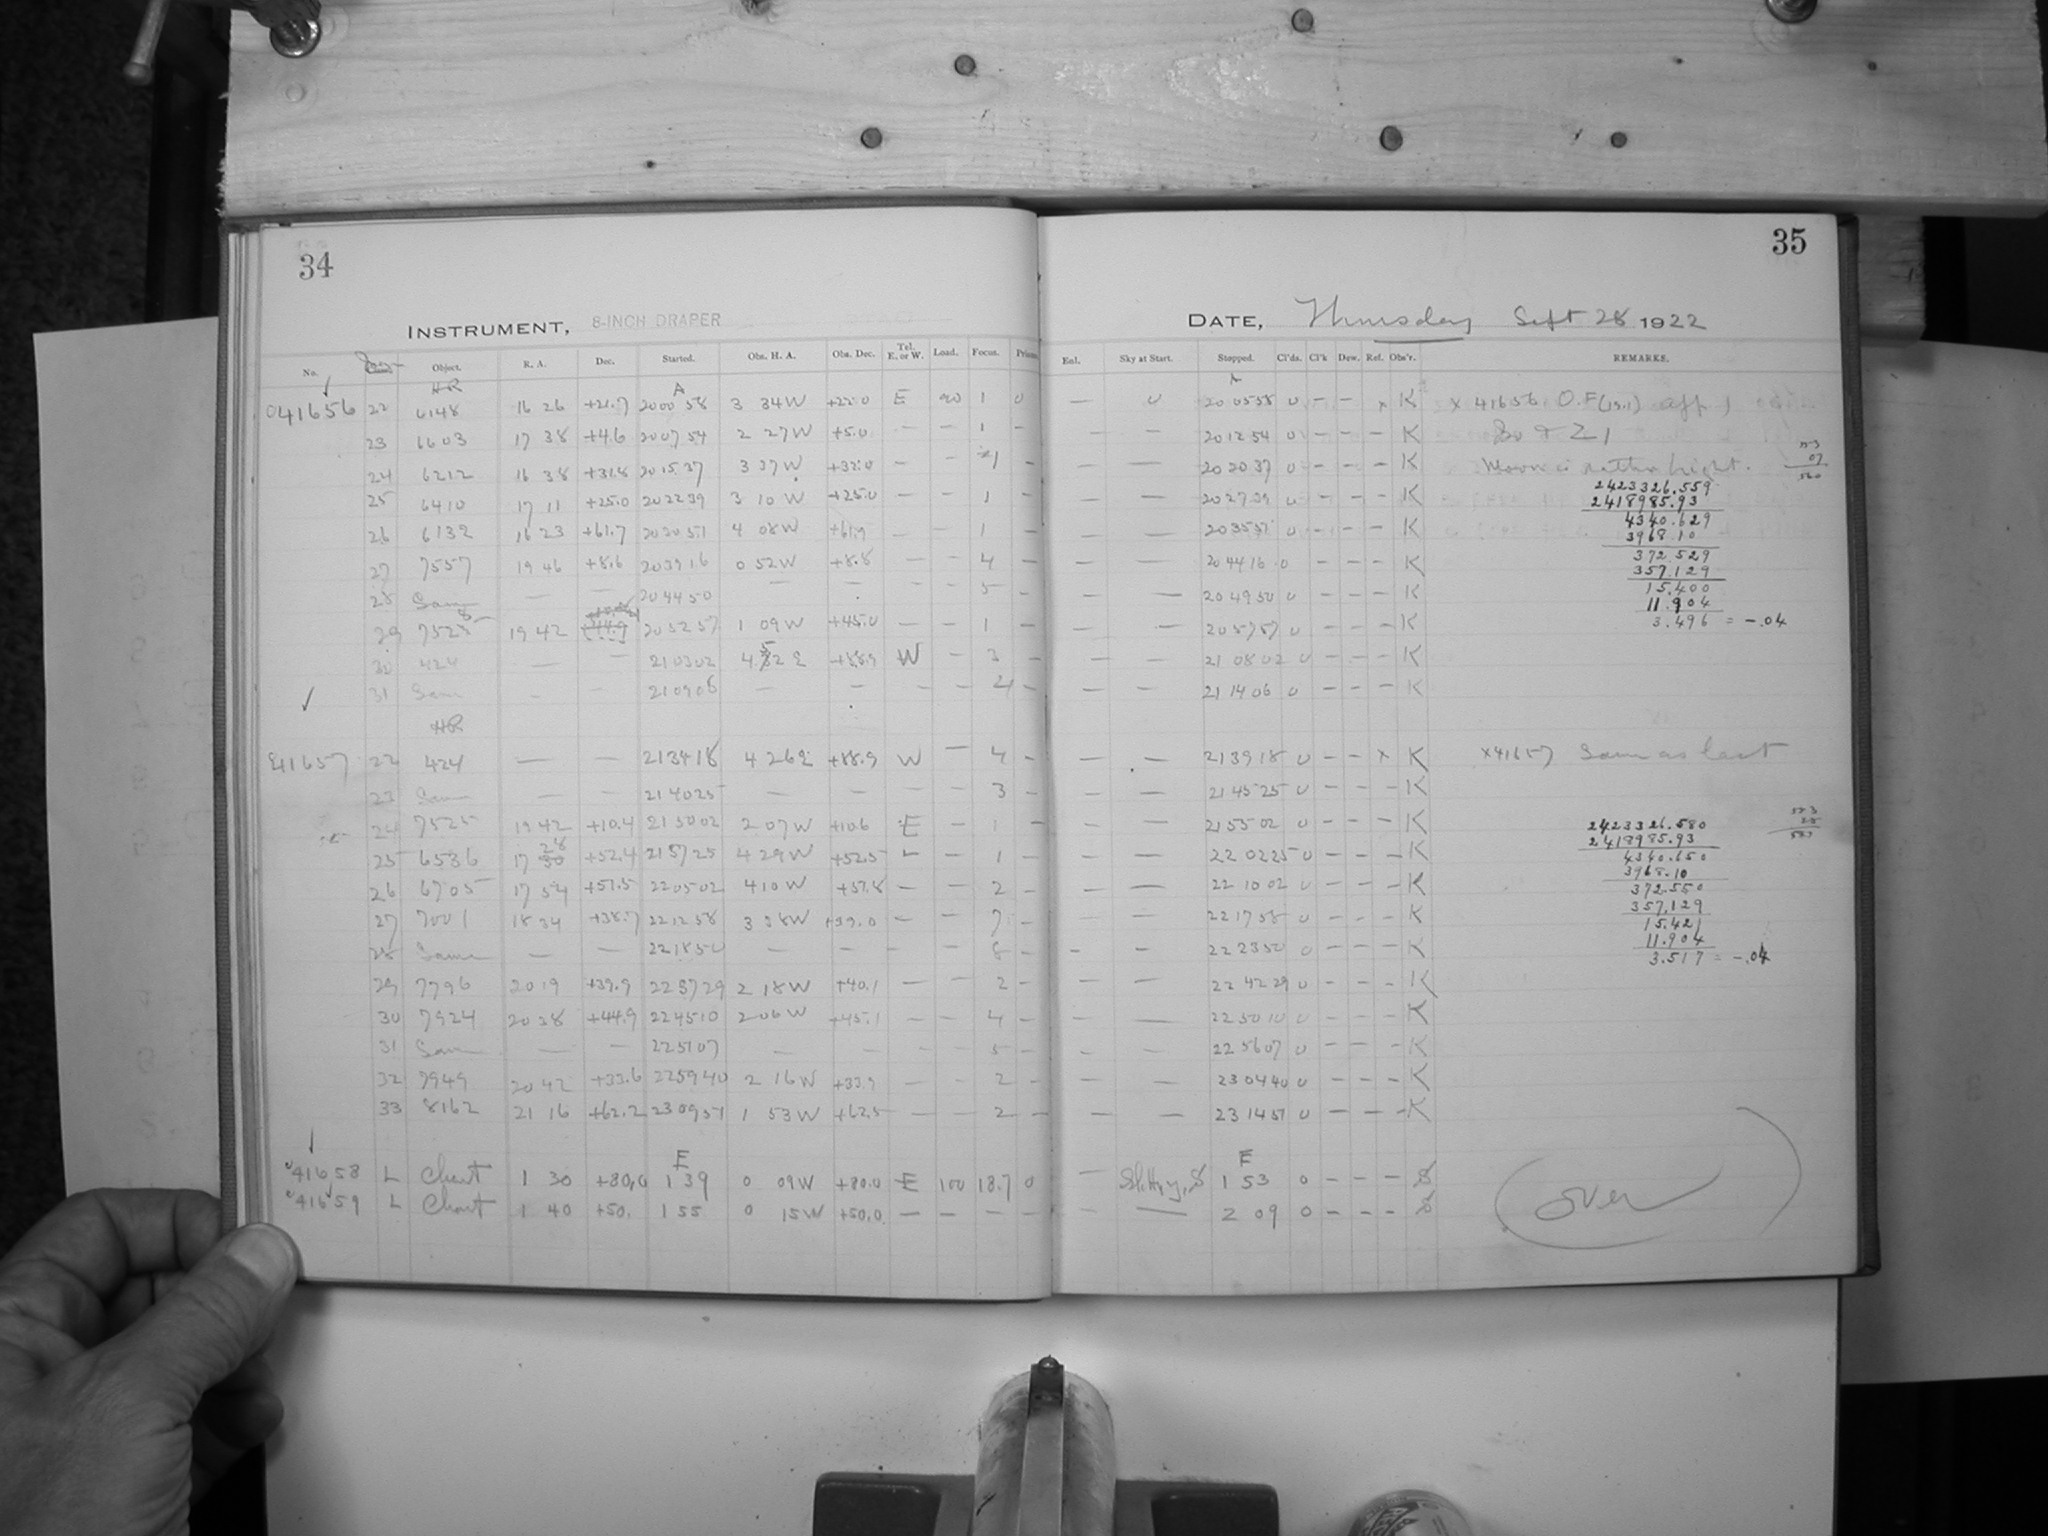 34
INSTRUMENT, 8-INCH DRAPER
No. Object. R. A. Dec. Started. Obs. H. A. Obs. Dec. Tel. E. or W. Load. Focus. Prism
HR A
41656 22 6148 16 26 +21.7 20 00 58 3 34W +22.0 E 90 1 0
23 6603 17 38 +4.6 20 07 54 2 27W +5.0 — — 1 —
24 6212 16 38 +31.8 20 15 37 3 37W +32.0 — — 1 —
25 6410 17 11 +25.0 20 22 39 3 10 W +25.0 — — 1 —
26 6132 16 23 +61.7 20 30 51 4 08W +61.9 — 1 —
27 7557 19 46 +8.6 20 39 16 0 52W +8.8 — — 4 —
28 Same — — 20 44 50 — — 5 —
29 7528 19 42 20 52 57 1 09W +45.0 — — 1 —
30 424 — — 21 03 02 4 52 E +88.9 W — 3 —
31 Same — — 21 09 06 — — — — 2 —
HR
41657 22 424 — — 21 34 18 4 26 E +88.9 W — 4 —
23 Same — — 21 40 25 — — — — 3 —
24 7525 19 42 +10.4 21 50 02 2 07W +10.6 E — 1 —
25 6536 17 28 +52.4 21 57 25 4 29W +52.5 — — 1 —
26 6705 17 54 +51.5 22 05 02 4 10 W +51.8 — — 2 —
27 7001 18 34 +38.7 22 12 58 3 38W +39.0 — — 7 —
28 Same — — 22 18 50 — — — — 8 —
29 7796 20 19 +39.9 22 37 29 2 18W +40.1 — 2 —
30 7924 20 38 +44.9 22 45 10 2 06W +45.1 — — 4 —
31 Same — — 22 51 07 — — — — 5 —
32 7949 20 42 +33.6 22 59 40 2 16W +33.9 — — 2 —
33 8162 21 16 +62.2 23 09 51 1 53W +62.5 — — 2 —
E
41658 L Chart 1 30 +80.0 1 39 0 09W +80.0 E 100 18.7 0
41659 L Chart 1 40 +50. 1 55 0 15W +50.0 — — — —
35
DATE, Thursday Sept 28 1922
Exl. Sky at Start. Stopped. Cl'ds. Cl'k Dew. Ref. Obs'r. REMARKS.
A
— 0 20 05 58 0 — — x K x 41656 O.F (15.1) aff
— — 20 12 54 0 — — — K 30 & 21
— — 20 20 37 0 — — — K Moon is rather bright.
— — 20 27 39 0 — — — K
— — 20 35 51 0 — — — K
— — 20 44 16 0 — — — K
— — 20 49 50 0 — — — K
— — 20 57 57 0 — — — K
— — 21 08 02 0 — — — K
— — 21 14 06 0 — — — K
553
07
560
2423326.559
2418985.93
4340.629
3968.10
372.529
357.129
15.400
11.904
3.496 = -.04
— — 21 39 18 0 — — x K x41657 Same as last
— — 21 45 25 0 — — — K
— — 21 55 02 0 — — — K
— — 22 02 25 0 — — — K
— — 22 10 02 0 — — — K
— — 22 17 58 0 — — — K
— — 22 23 50 0 — — — K
— — 22 42 29 0 — — — K
— — 22 50 10 0 — — — K
— — 22 56 07 0 — — — K
— — 23 04 40 0 — — — K
— — 23 14 51 0 — — — K
2423326.580
2418985.93
4340.650
3968.10
372.550
357.129
15.421
11.904
3.517 = -.04
E
— 1 53 0 — — —
— — 2 09 0 — — —
over